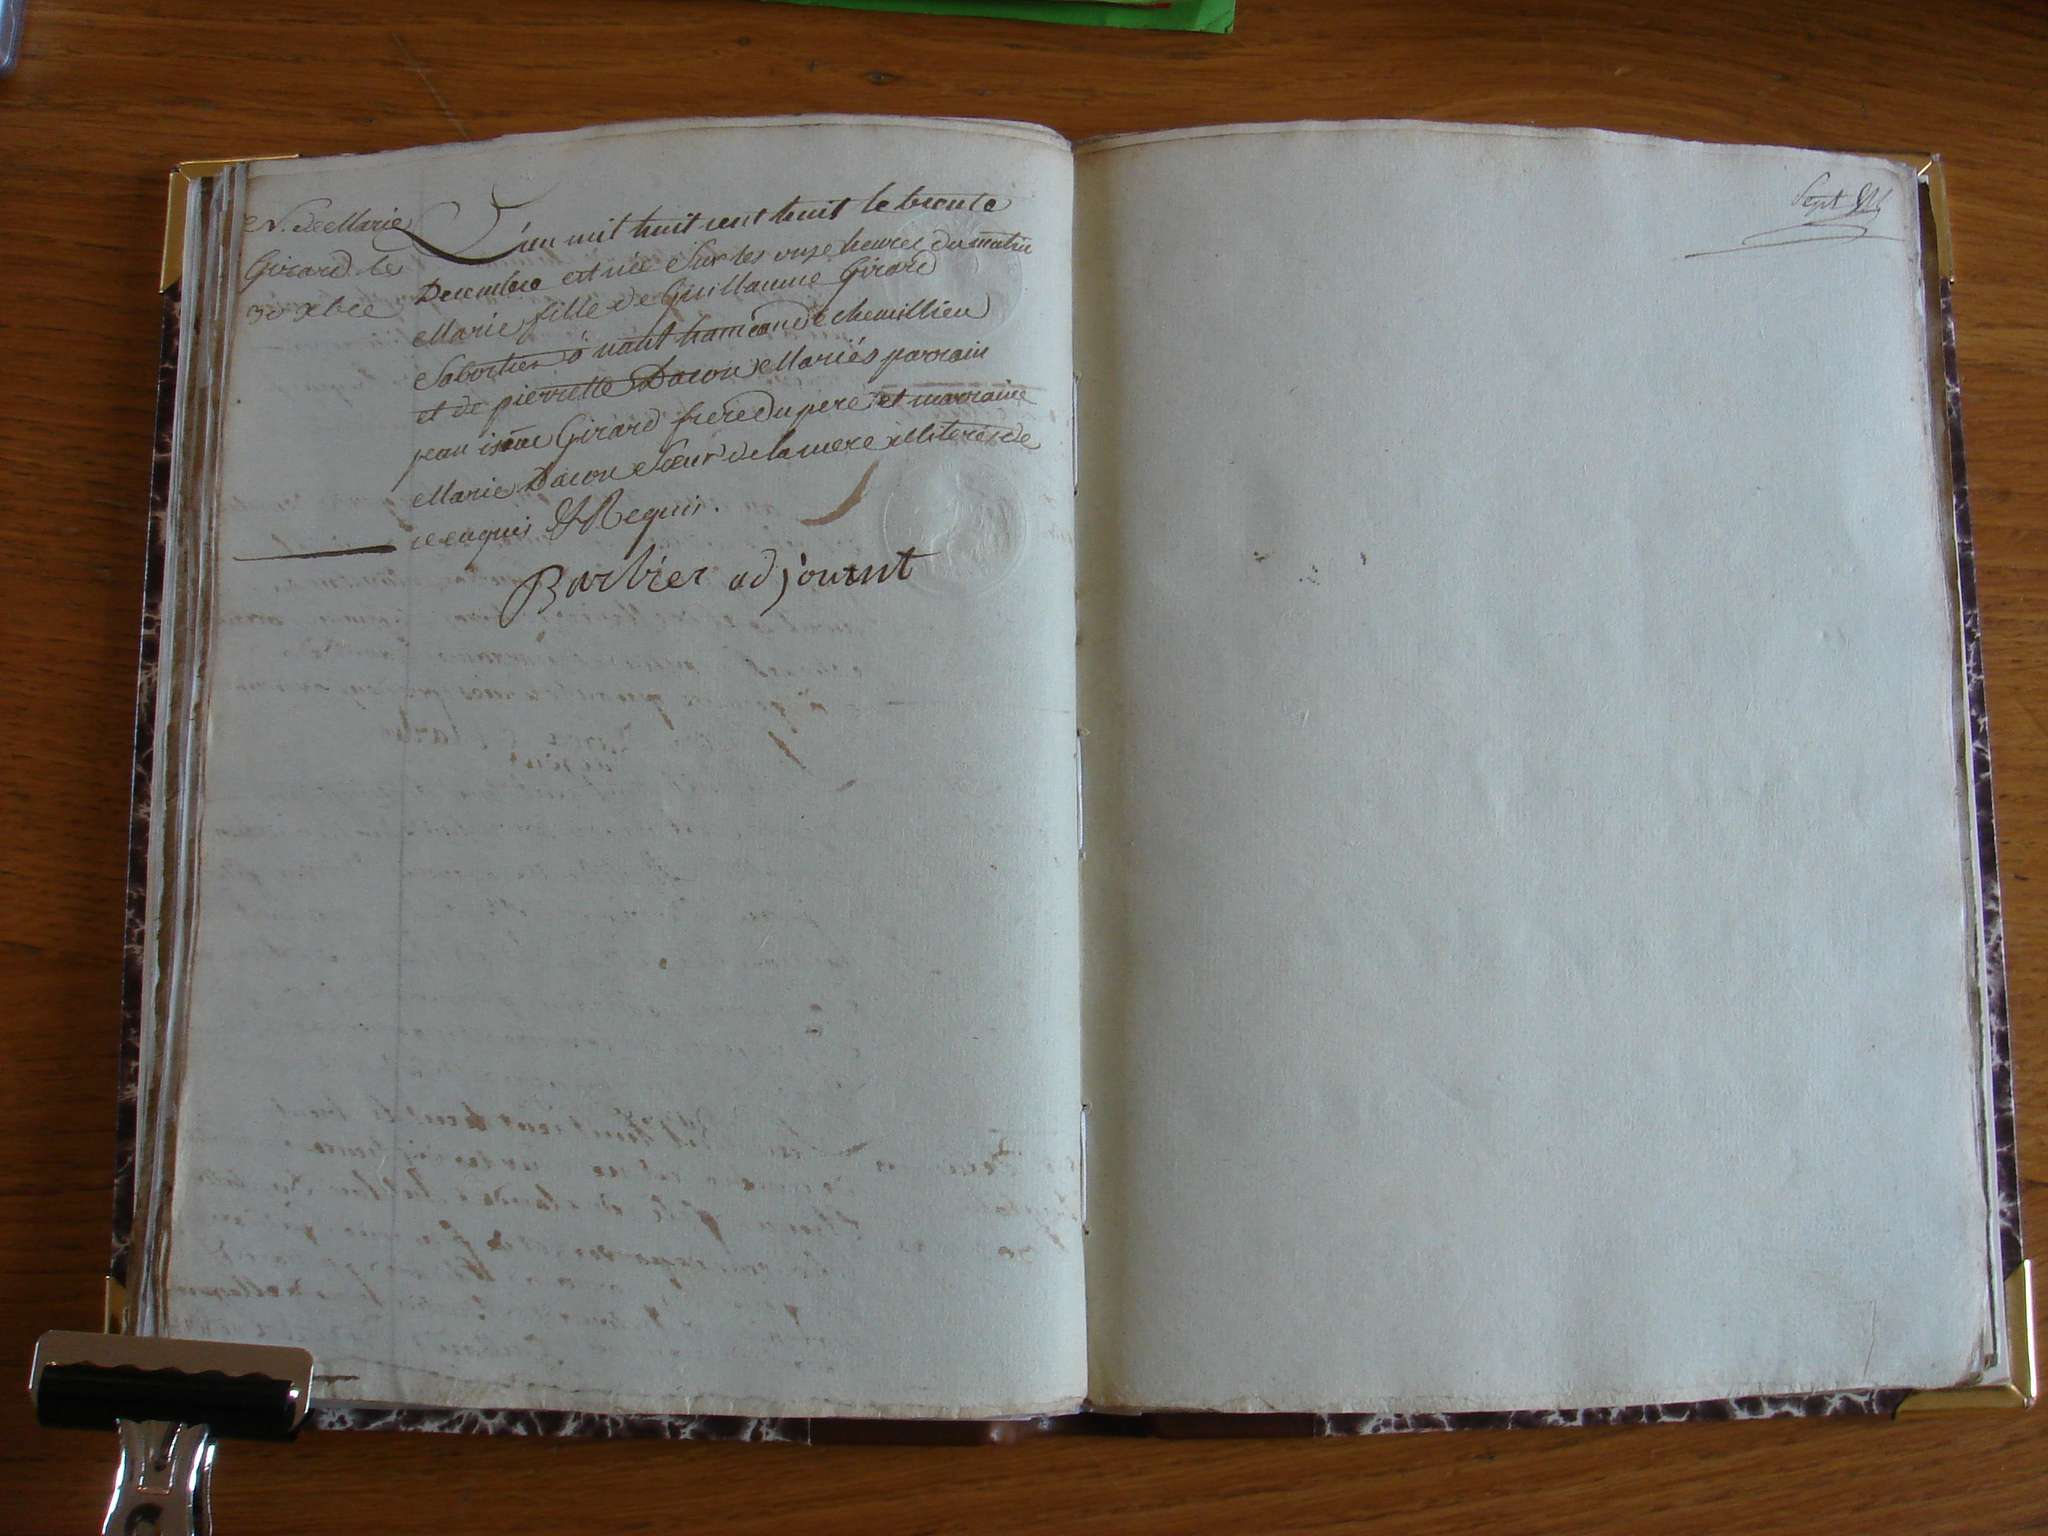 N. de Marie
Girard le
30 Xbre
L'an mil huit cent huit le trente
Decembre est née Sur les onze heures du matin
Marie fille de Guillaume Girard
Sabortier à nant hameau de chemillieu
et de pierrette Dacon Mariés parrain
jean isaac Girard frere du pere et marraine
Marie Dacon Sœur de la mere illiterés de
ce enquis & Requis.
Barbier adjoint
Sept